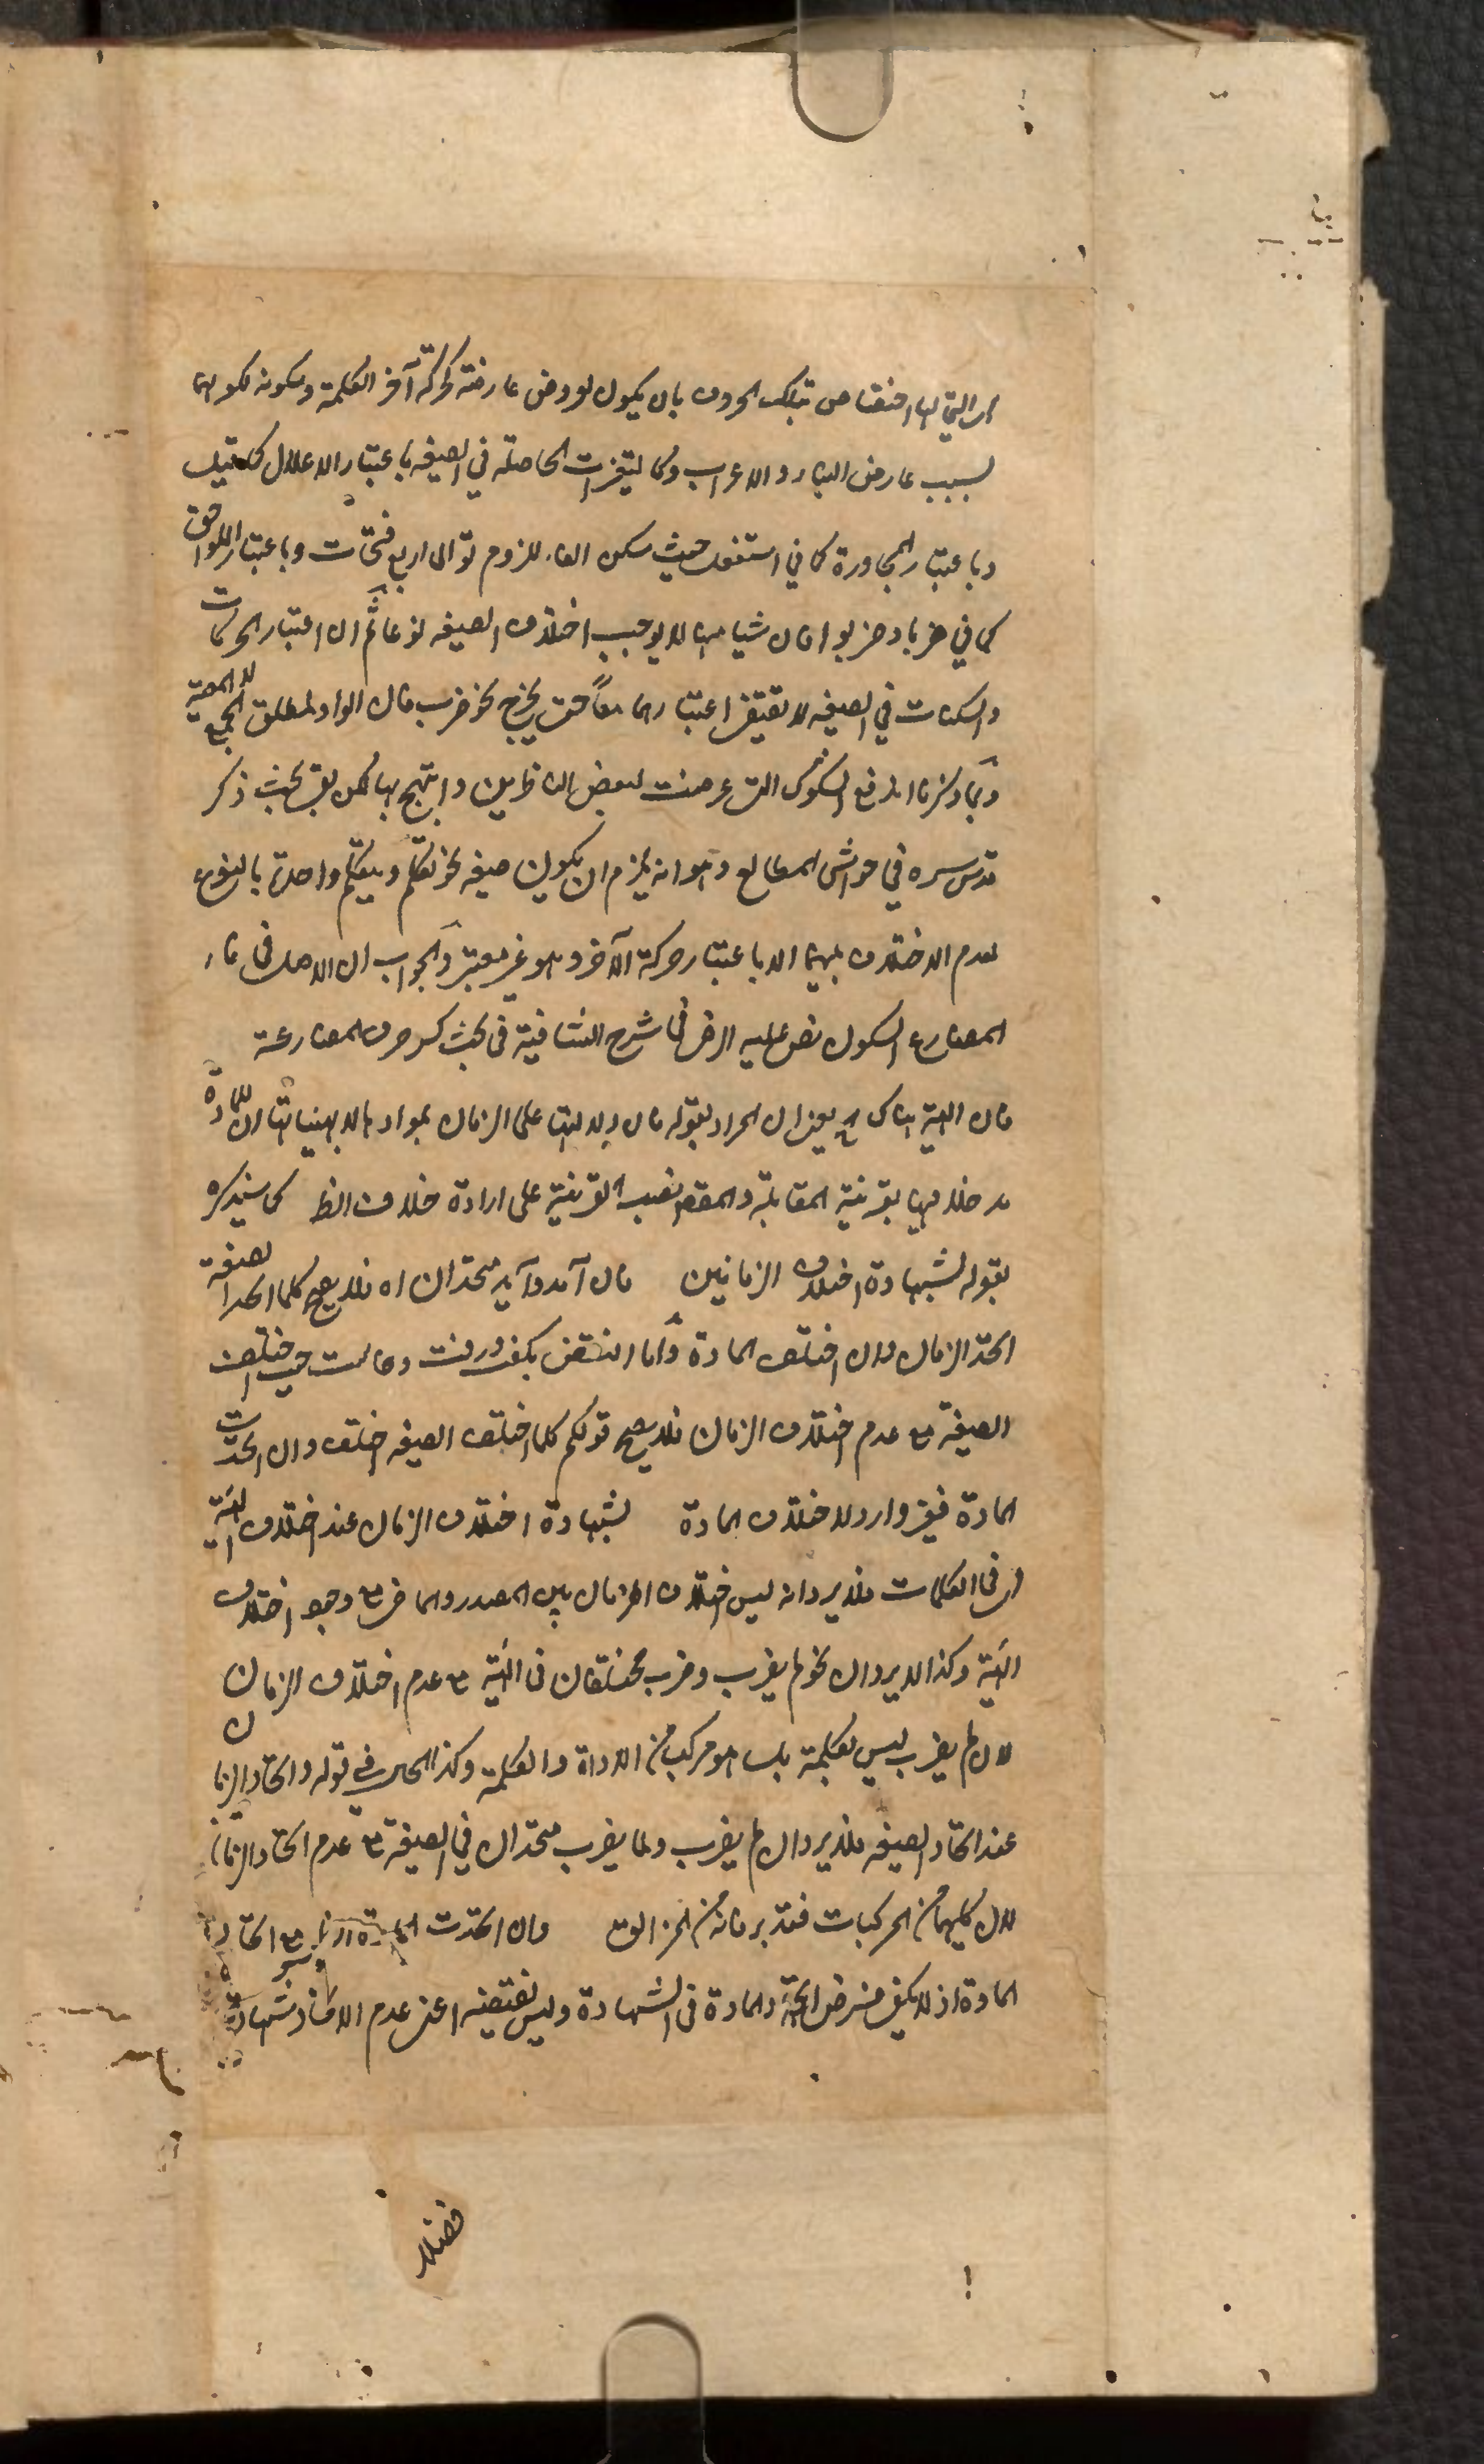 اى التي لها اختصاص بتلك الحروف بان يكون لو وضى عارضة كحركة آخر الكلمة وسكونه لكونهما
بسبب عارض البناء والاعراب وكالتغيرات الحاصلة في الصيغه باعتبار الاعلال كما قيل
وباعتبار المجاورة كما في استفعل حيث سكن الفاء للزوم توالى اربع فتحات وباعتبار اللواحق
كما في ضربا وضربوا فان شيا منها لا يوجب اختلاف الصيغه نوعا ثم ان اعتبار الحركات
والسكنات في الصيغه لا يقتضى اعتبارهما معا حتى يخرج نحو ضرب فان الواو لمطلق الجمع لا للمعية
وبما ذكرنا اندفع الشكوك التى عرضت لبعض الناظرين وابتهج بها لكن بقى بحث ذكر
قدس سره في حواشى المطالع وهو انه يلزم ان يكون صيغه نحو تكلم ويتكلم واحدة بالنوع
لعدم الاختلاف بينهما الا باعتبار حركة الآخر وهو غير معتبر والجواب ان الاصل فى فاء
المضارع السكون نص عليه الرضى فى شرح الشافية فى بحث كسر حرف المضارعة
قال الهيئة هناك اه يعنى ان المراد بقوله فان دلالتها على الزمان بموادها لا بهيئاتها ان للمادة
مدخلا فيها بقرينة المقابلة والمقصود نصب القرينة على ارادة خلاف الظ كما سيذكره
بقوله لشهادة اختلاف الزمانين قال آمد وآيد متحدان اه فلا يصح كلما اتحد الصيغة
اتحد الزمان وان اختلف المادة واما النقض بكفت ورفت وقالت حيث اختلف
الصيغة مع عدم اختلاف الزمان فلا يصح قولكم كلما اختلف الصيغه اختلف وان اتحدت
المادة فغير وارد لاختلاف المادة لشهادة اختلاف الزمان عند اختلاف الهيئة
اى فى الكلمات فلا يرد انه ليس اختلاف الزمان بين المصدر والماضى مع وجود اختلاف
الهيئة وكذا لا يرد ان نحو لم يضرب وضرب مختلفان فى الهيئة مع عدم اختلاف الزمان
لان لم يضرب ليس بكلمة بل هو مركب من الاداة والكلمة وكذا الحال في قوله واتحاد الزمان
عند اتحاد الصيغه فلا يرد ان لم يضرب ولما يضرب متحدان في الصيغة مع عدم اتحاد الزمان
لان كليهما من المركبات فتدبر فانه من المزالق وان اتحدت المادة اى مع اتحاد
المادة اذ لا يكفى مفروض الهيئة والمادة فى الشهادة وليس نقيضه اعنى عدم الاتحاد شهادة
فضلا